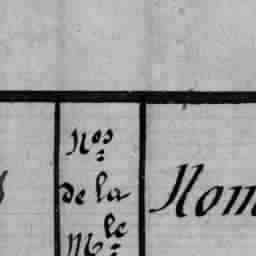 Nos
de la
Mle
Nom